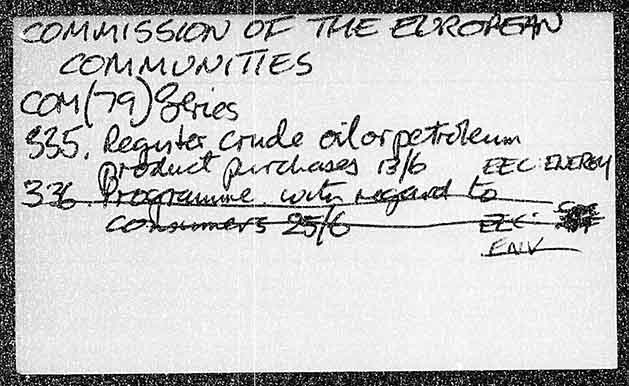 COMMISSION OF THE EUROPEAN
COMMUNITIES
COM(79) Series
335. Register crude oil or petroleum
product purchases 13/6 EEC: ENERGY
336 Programme with regard to
consumers 25/6 EEC:
ENV